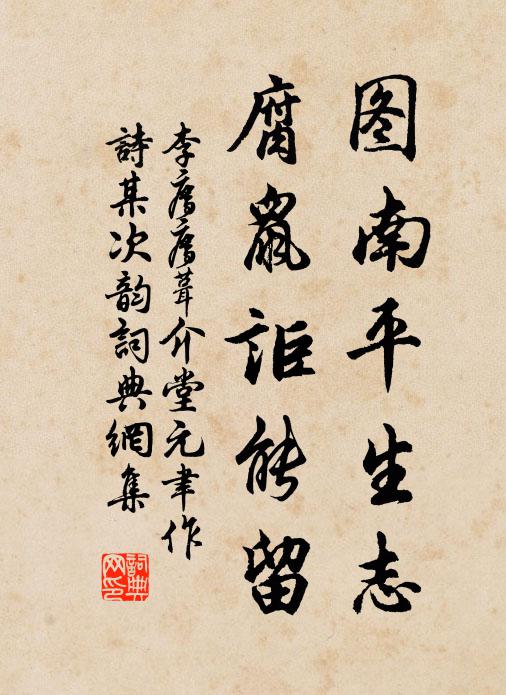 图南平生志
腐鼠讵能留
李廌廌葺介堂元聿作
詩某次韵詞典網集
詞典网印